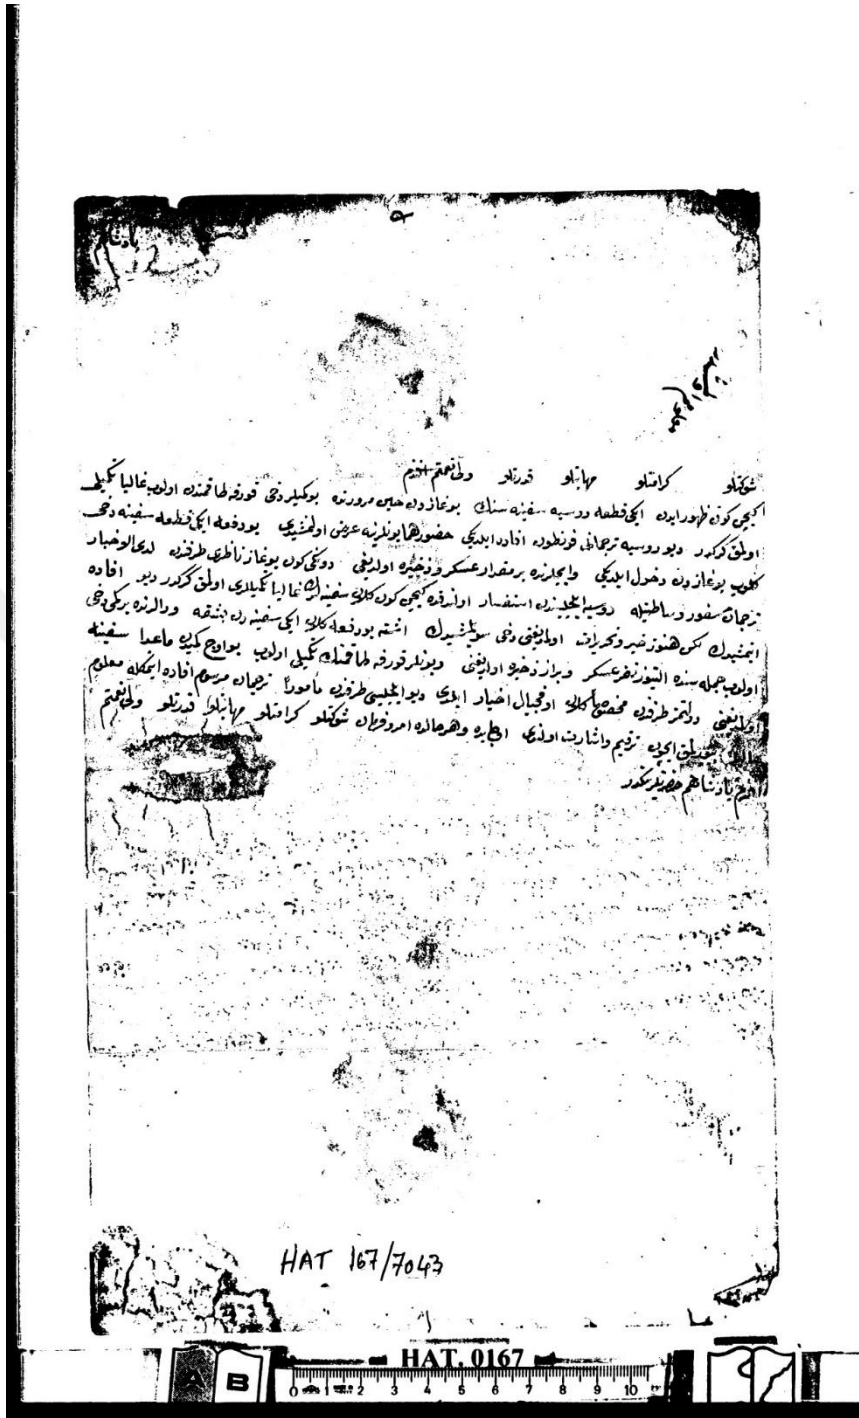 معلوم اولمشدر
شوكتلو كرامتلو مهابتلو قدرتلو ولى نعمتم افندم
كچن كون ظهور ايدن ايكى قطعه روسيه سفينه سنك بوغازدن حين مرورنده بو كميلر دخى قورفه طاقمندن اولوب غالبا تكميلى
اولمق كركدر ديو روسيه ترجمانى فونطون افاده ايلديكى حضور همايونلرينه عرض اولنمشيدى بو دفعه ايكى قطعه سفينه دخى
كلوب بوغازدن دخول ايلديكى وايچلرنده بر مقدار عسكر وذخيره اولديغى دونكى كون بوغاز ناظرى طرفندن لدى الاخبار
ترجمان مسفور وساطتيله روسيه ايلچيسندن استفسار اولندقده كچن كون كلان سفينه لرك غالبا تكميلى اولمق كركدر ديو افاده
ايتمشيدك لكن هنوز خبر وتحريرات اولمديغنى دخى سويلمشيدك اشته بو دفعه كلان ايكى سفينه دن بشقه
اولوب جمله سنده التيوز نفر عسكر وبراز ذخيره اولديغنى وبونلر قورفه طاقمنك تكميلى اولوب بو اوج كميدن ماعدا سفينه
اولمديغنى دولتمز طرفندن اخبار ايلدى ديو ايلچيسى طرفندن مأمورا ترجمان مرسوم افاده ايتمكله معلوم
بيورلمق ايچون ترقيم واشارت اولندى اولبابده وهر حالده امر وفرمان شوكتلو كرامتلو مهابتلو قدرتلو ولى نعمتم
افندم پادشاهم حضرتلرينكدر
HAT 167/7043
HAT. 0167
A B
0 1 2 3 4 5 6 7 8 9 10